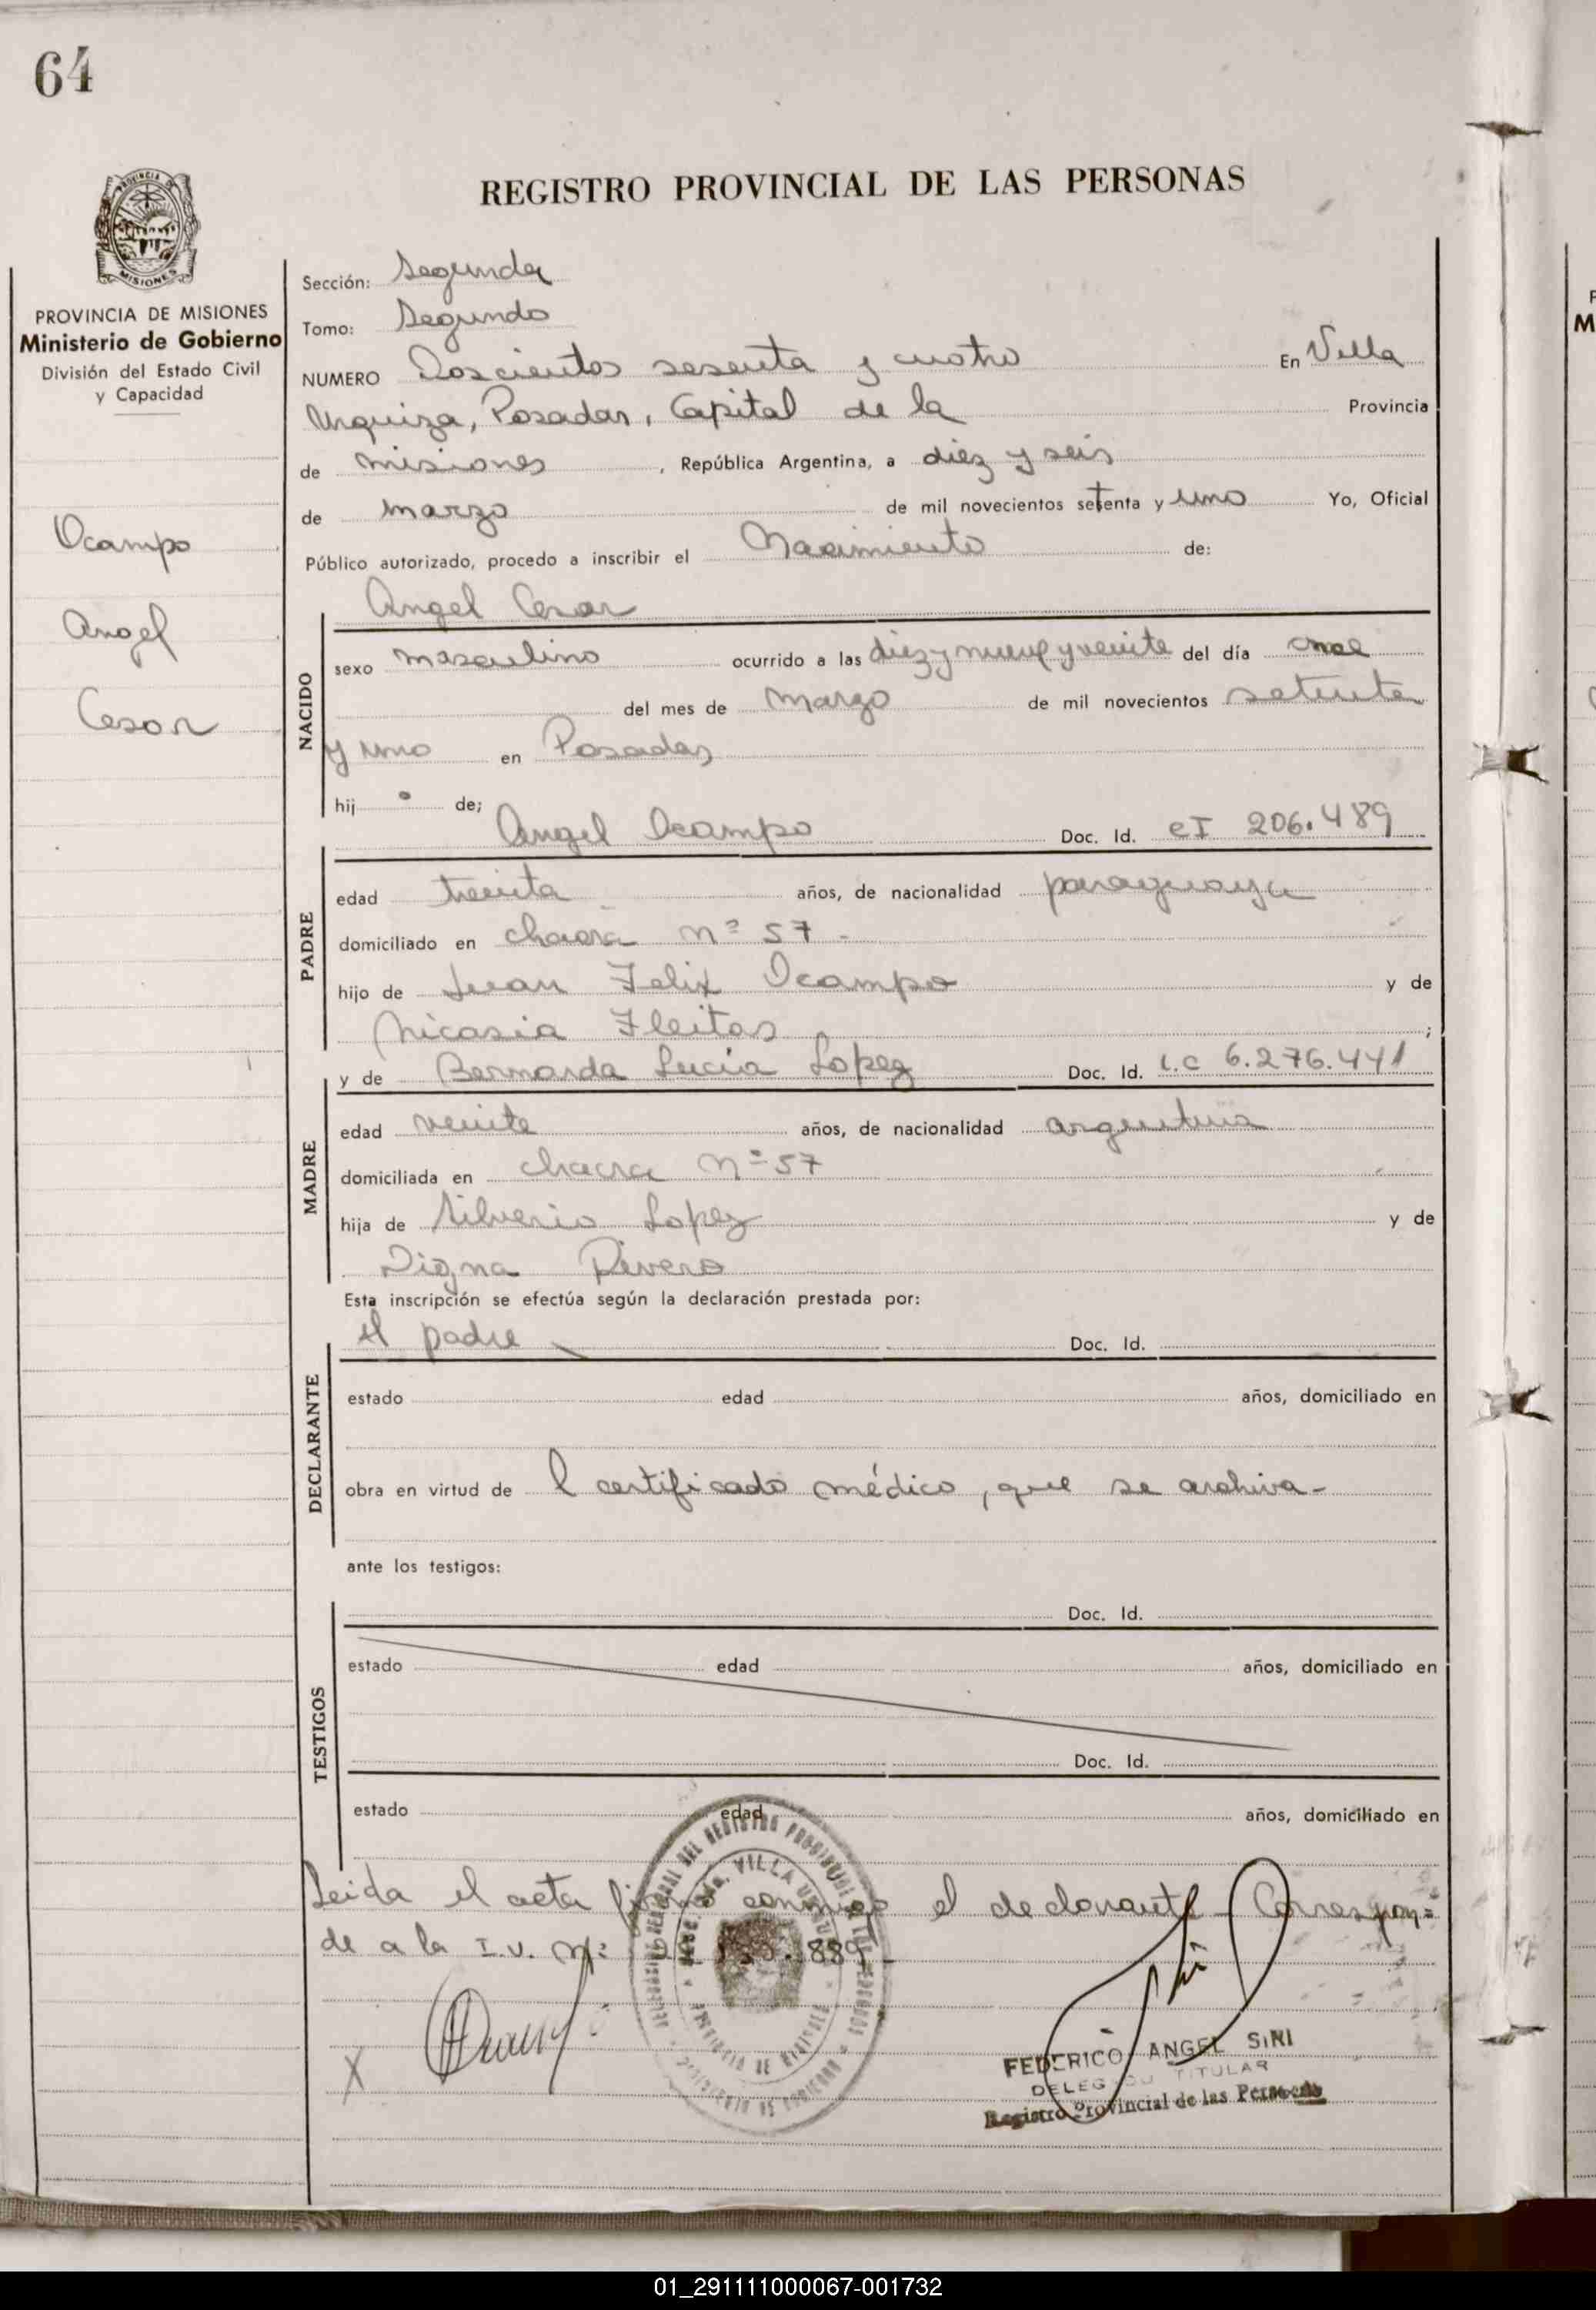 64
PROVINCIA DE
MISIONES
PROVINCIA DE MISIONES
Ministerio de Gobierno
División del Estado Civil
y Capacidad
Ocampo
Angel
Cesar
REGISTRO PROVINCIAL DE LAS PERSONAS
Sección: Segunda
Tomo: Segundo
NUMERO Doscientos sesenta y cuatro En Villa
Urquiza, Posadas, Capital de la Provincia
de misiones, República Argentina, a diez y seis
de marzo de mil novecientos setenta y uno Yo, Oficial
Público autorizado, procedo a inscribir el Nacimiento de:
Angel Cesar
NACIDO
sexo masculino ocurrido a las diez y nueve y veinte del día once
del mes de marzo de mil novecientos setenta
y uno en Posadas
hij o de; Angel Ocampo Doc. Id. CI 206.489
PADRE
edad treinta años, de nacionalidad paraguaya
domiciliado en chacra Nº 57 -
hijo de Juan Felix Ocampo y de
Nicasia Fleitas ;
y de Bernarda Lucia Lopez Doc. Id. L.C 6.276.441
MADRE
edad veinte años, de nacionalidad argentina
domiciliada en chacra Nº 57
hija de Silverio Lopez y de
Digna Rivero
Esta inscripción se efectúa según la declaración prestada por:
el padre Doc. Id.
DECLARANTE
estado edad años, domiciliado en
obra en virtud de l certificado médico, que se archiva-
ante los testigos:
Doc. Id.
TESTIGOS
estado edad años, domiciliado en
Doc. Id.
estado edad años, domiciliado en
Leida el acta firma conmigo el declarante - Correspon=
de a la I.V. Nº 889 -
VILLA URQUIZA
PROVINCIA DE MISIONES
MINISTERIO DE GOBIERNO
X
FEDERICO ANGEL SIRI
DELEGADO TITULAR
Registro Provincial de las Personas
01_291111000067-001732